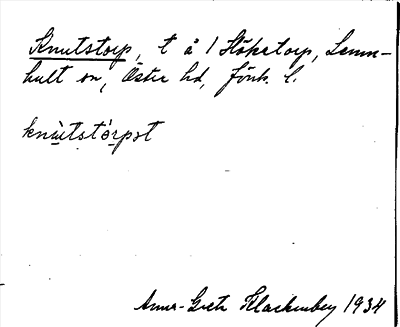 Knutstorp, t å 1 Stökstorp, Lann-
hult sn, Öster hd, Jönk. l.
knùtstórpət
Anna-Greta Klackenberg 1934